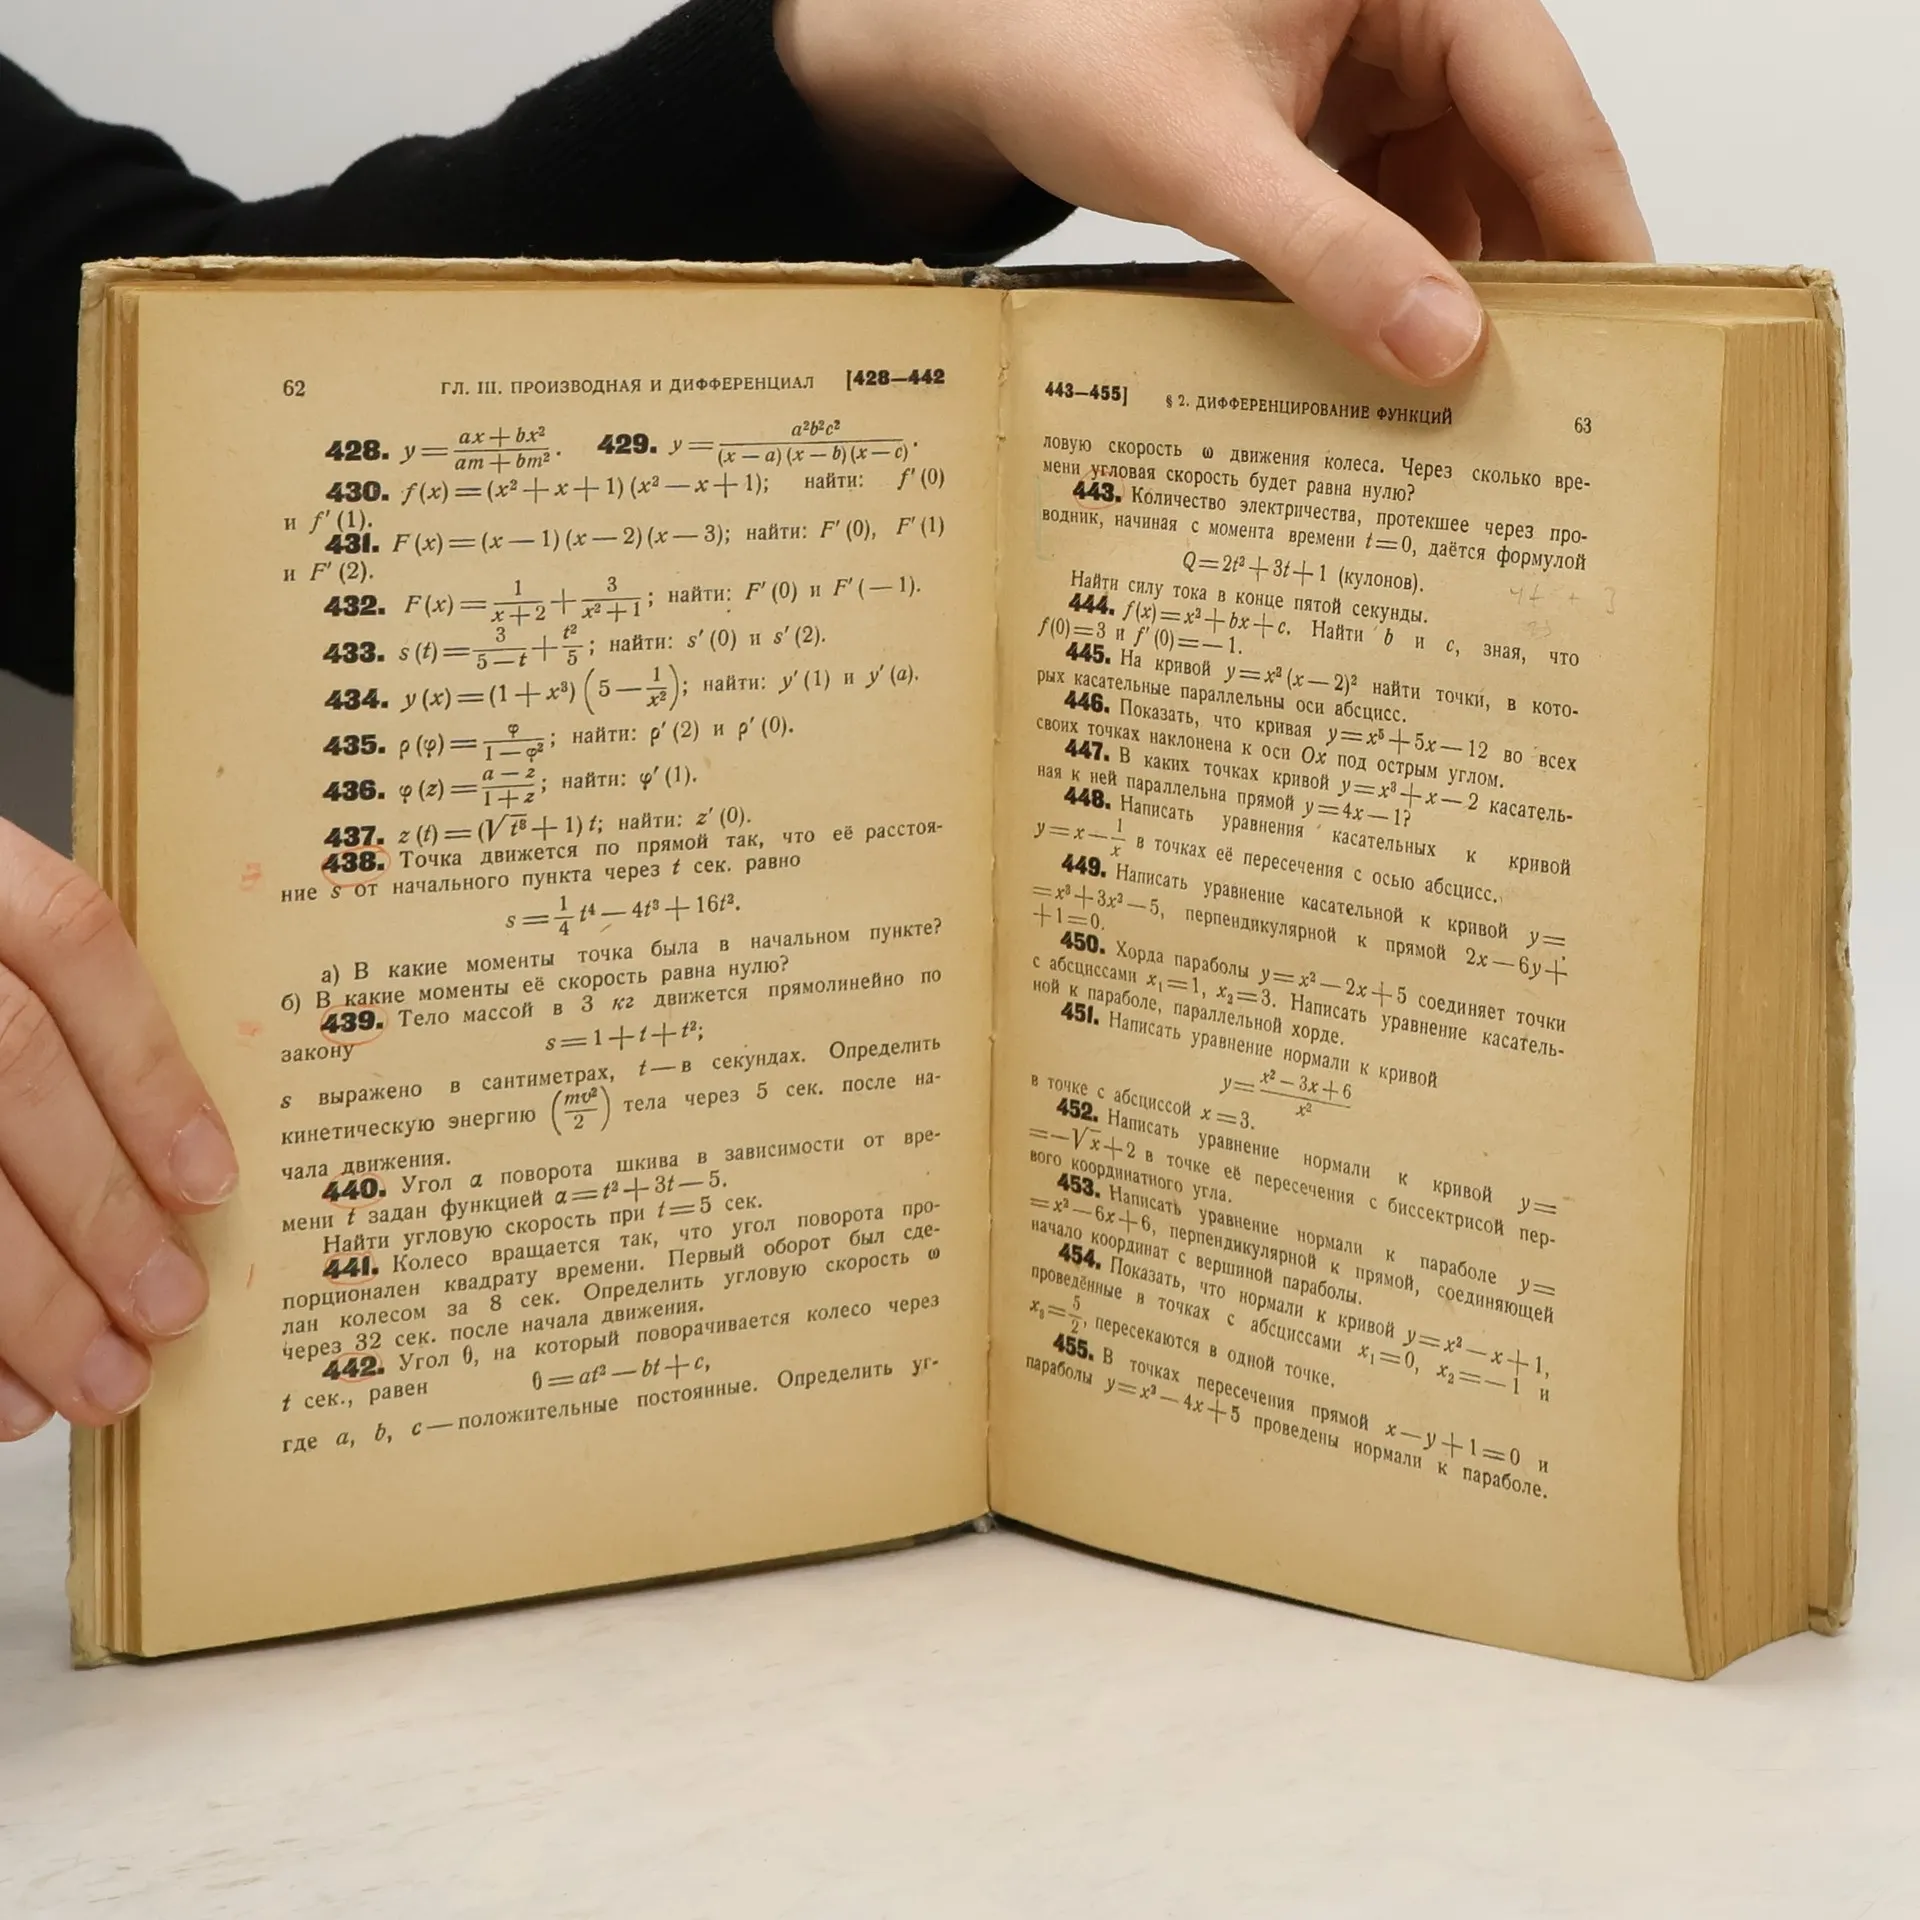 62 ГЛ. III. ПРОИЗВОДНАЯ И ДИФФЕРЕНЦИАЛ [428—442
428. y = (ax + bx²)/(am + bm²). 429. y = a²b²c²/((x — a)(x — b)(x — c)).
430. f(x) = (x² + x + 1)(x² — x + 1); найти: f′(0)
и f′(1).
431. F(x) = (x — 1)(x — 2)(x — 3); найти: F′(0), F′(1)
и F′(2).
432. F(x) = 1/(x + 2) + 3/(x² + 1); найти: F′(0) и F′(— 1).
433. s(t) = 3/(5 — t) + t²/5; найти: s′(0) и s′(2).
434. y(x) = (1 + x³)(5 — 1/x²); найти: y′(1) и y′(a).
435. ρ(φ) = φ/(1 — φ²); найти: ρ′(2) и ρ′(0).
436. φ(z) = (a — z)/(1 + z); найти: φ′(1).
437. z(t) = (√t³ + 1) t; найти: z′(0).
438. Точка движется по прямой так, что её расстоя-
ние s от начального пункта через t сек. равно
s = 1/4 t⁴ — 4t³ + 16t².
а) В какие моменты точка была в начальном пункте?
б) В какие моменты её скорость равна нулю?
439. Тело массой в 3 кг движется прямолинейно по
закону
s = 1 + t + t²;
s выражено в сантиметрах, t — в секундах. Определить
кинетическую энергию (mv²/2) тела через 5 сек. после на-
чала движения.
440. Угол α поворота шкива в зависимости от вре-
мени t задан функцией α = t² + 3t — 5.
Найти угловую скорость при t = 5 сек.
441. Колесо вращается так, что угол поворота про-
порционален квадрату времени. Первый оборот был сде-
лан колесом за 8 сек. Определить угловую скорость ω
через 32 сек. после начала движения.
442. Угол θ, на который поворачивается колесо через
t сек., равен
θ = at² — bt + c,
где a, b, c — положительные постоянные. Определить уг-
443—455] § 2. ДИФФЕРЕНЦИРОВАНИЕ ФУНКЦИЙ 63
ловую скорость ω движения колеса. Через сколько вре-
мени угловая скорость будет равна нулю?
443. Количество электричества, протекшее через про-
водник, начиная с момента времени t = 0, даётся формулой
Q = 2t² + 3t + 1 (кулонов).
4t + 3
Найти силу тока в конце пятой секунды.
23
444. f(x) = x³ + bx + c. Найти b и c, зная, что
f(0) = 3 и f′(0) = — 1.
445. На кривой y = x²(x — 2)² найти точки, в кото-
рых касательные параллельны оси абсцисс.
446. Показать, что кривая y = x⁵ + 5x — 12 во всех
своих точках наклонена к оси Ox под острым углом.
447. В каких точках кривой y = x³ + x — 2 касатель-
ная к ней параллельна прямой y = 4x — 1?
448. Написать уравнения касательных к кривой
y = x — 1/x в точках её пересечения с осью абсцисс.
449. Написать уравнение касательной к кривой y =
= x³ + 3x² — 5, перпендикулярной к прямой 2x — 6y +
+ 1 = 0.
450. Хорда параболы y = x² — 2x + 5 соединяет точки
с абсциссами x₁ = 1, x₂ = 3. Написать уравнение касатель-
ной к параболе, параллельной хорде.
451. Написать уравнение нормали к кривой
y = (x² — 3x + 6)/x²
в точке с абсциссой x = 3.
452. Написать уравнение нормали к кривой y =
= —√x + 2 в точке её пересечения с биссектрисой пер-
вого координатного угла.
453. Написать уравнение нормали к параболе y =
= x² — 6x + 6, перпендикулярной к прямой, соединяющей
начало координат с вершиной параболы.
454. Показать, что нормали к кривой y = x² — x + 1,
проведённые в точках с абсциссами x₁ = 0, x₂ = — 1 и
x₃ = 5/2, пересекаются в одной точке.
455. В точках пересечения прямой x — y + 1 = 0 и
параболы y = x² — 4x + 5 проведены нормали к параболе.